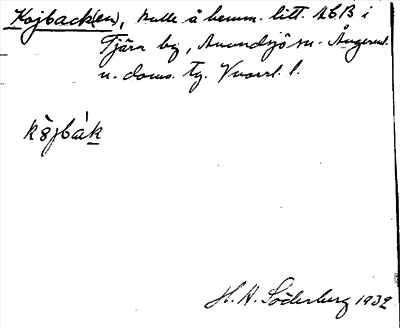 Kojback(en), kulle å hemm. litt. A&B i
Tjärn by, Anundsjö sn. Ångerml.
n. doms. tg. Vnorrl. l.
kȯjbák
H. H. Söderberg 1932